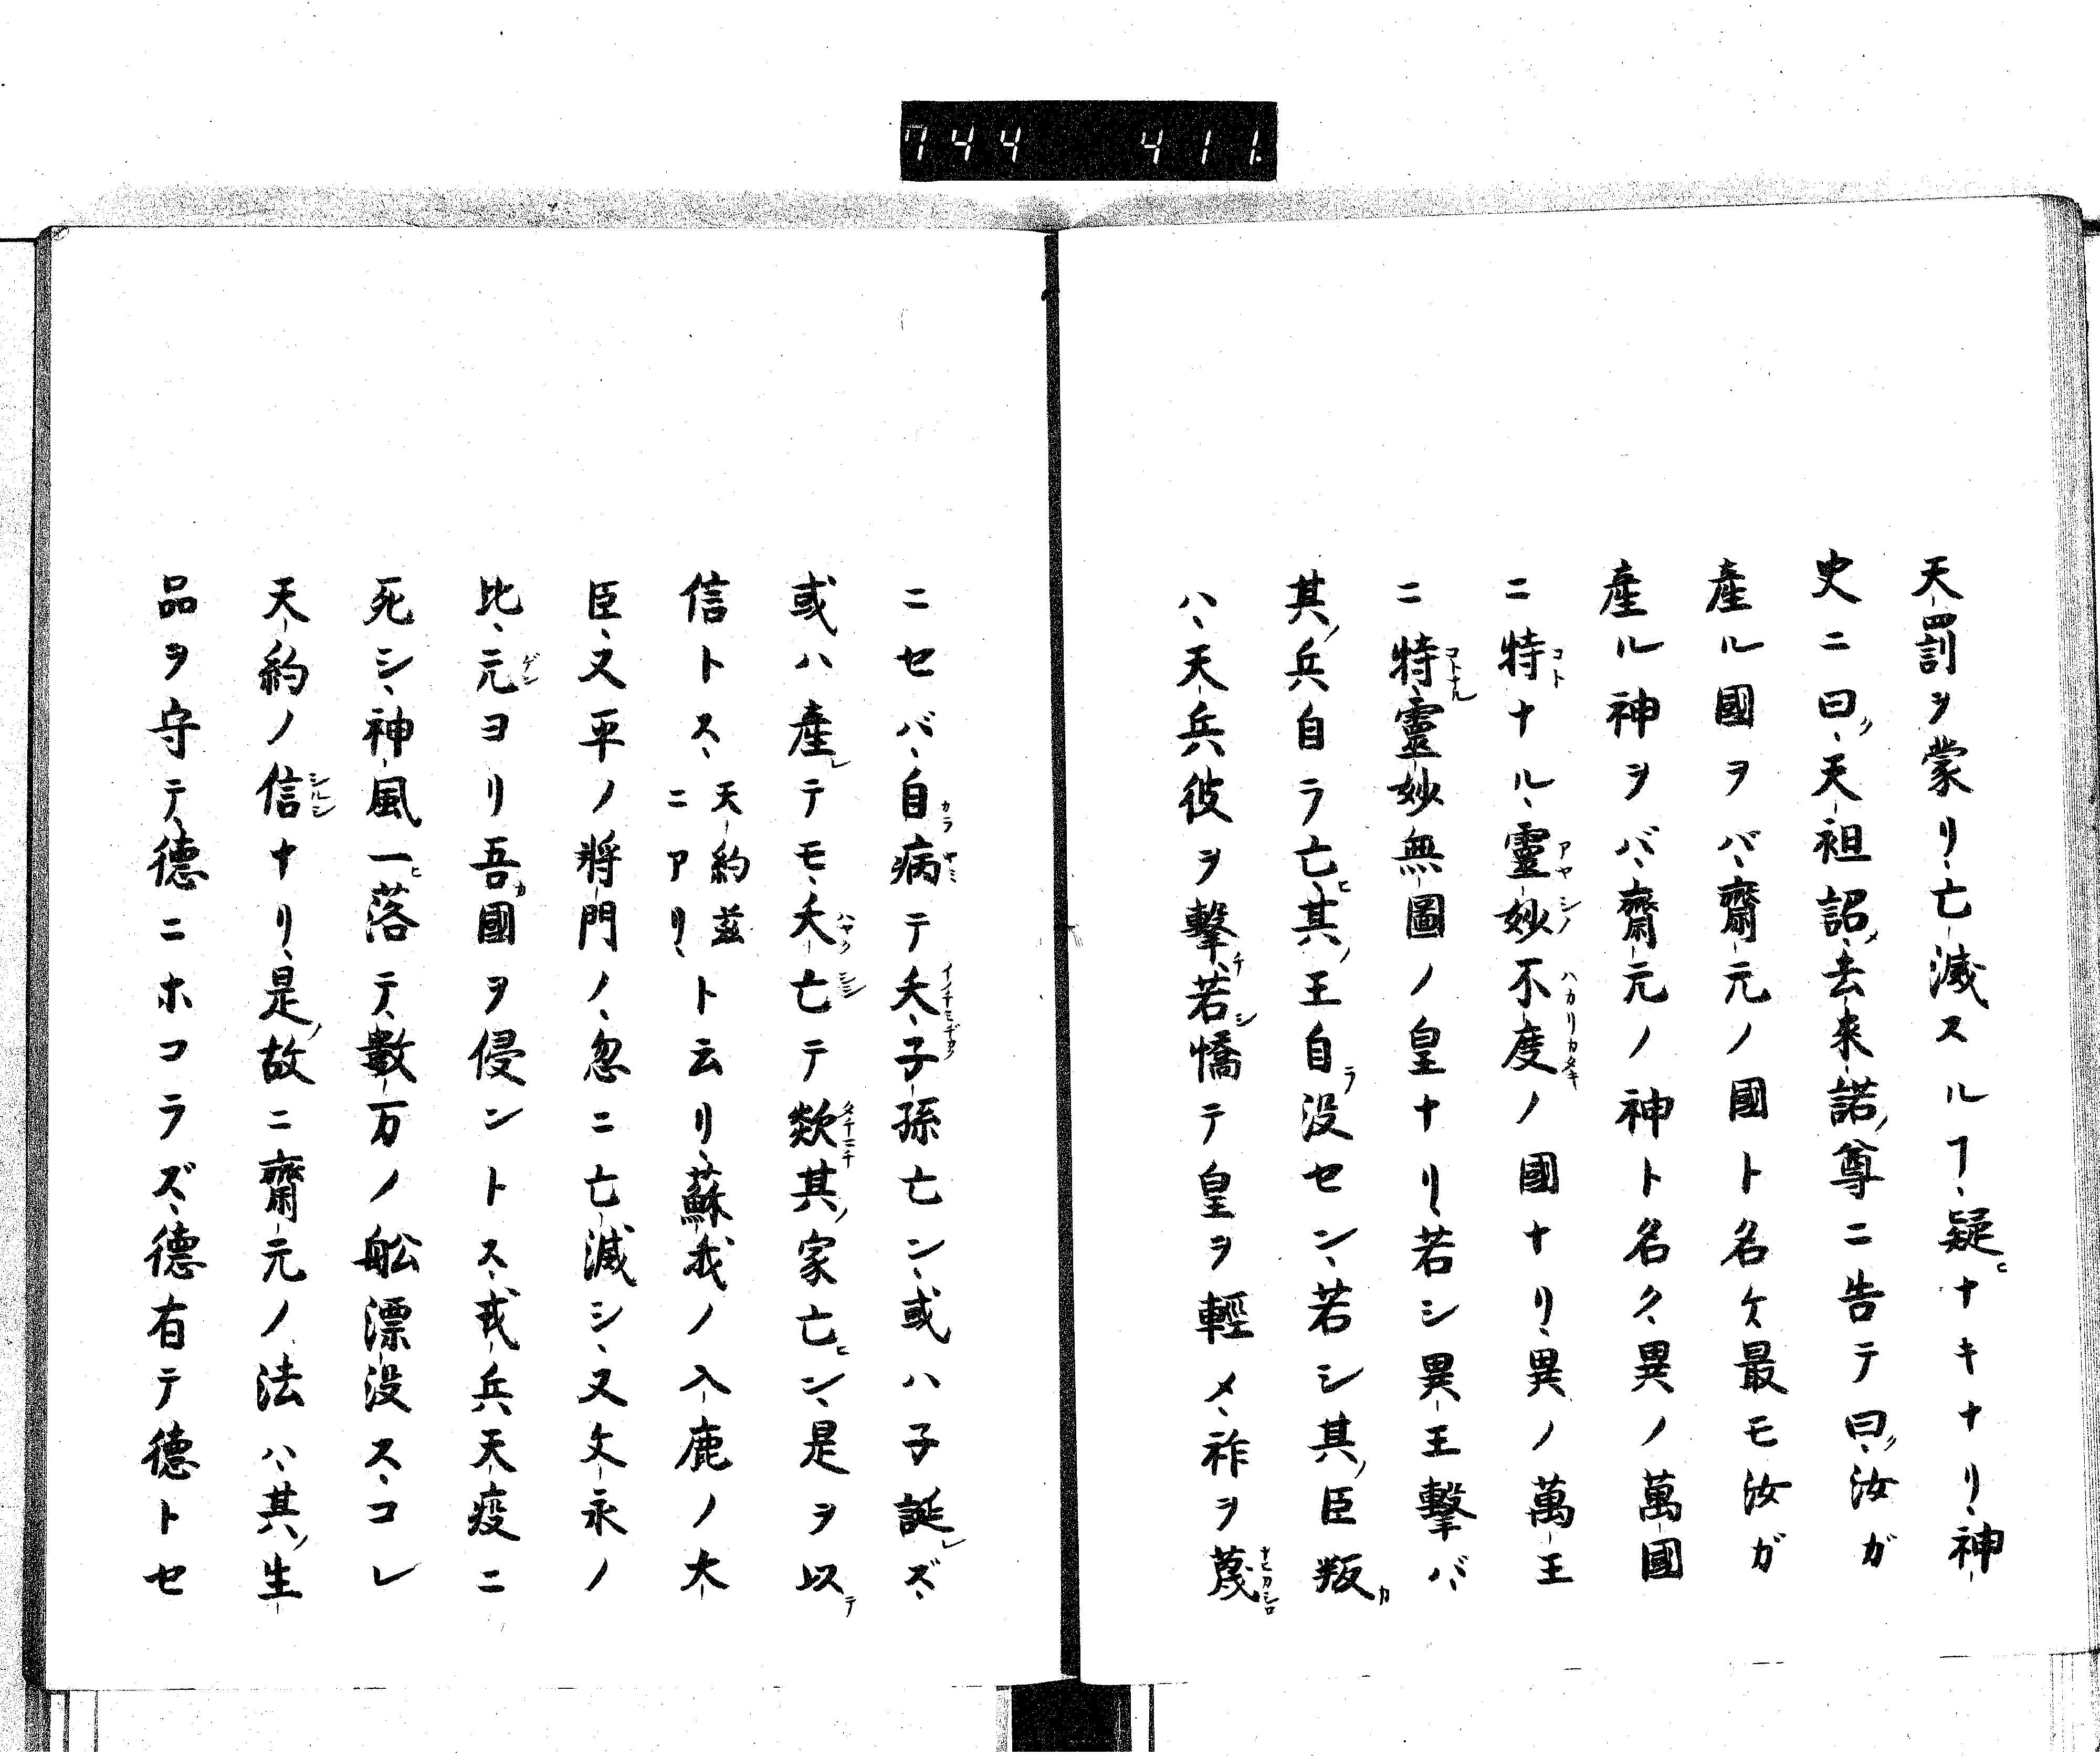 744 411.
天罰ヲ蒙リ、亡滅スルヿ、疑ヒナキナリ、神
史ニ曰ク、天祖詔メ、去来諾ノ尊ニ告テ曰ク、汝ガ
產ル國ヲバ、齋元ノ國ト名ケ、最モ汝ガ
產ル神ヲバ、齋元ノ神ト名ク、異ノ萬國
ニ特ナル、靈妙不度ノ國ナリ、異ノ萬王
ニ特、靈妙無圖ノ皇ナリ、若シ異王擊バ、
其ノ兵自ラ亡ヒ、其ノ王自ラ没セン、若シ其ノ臣叛カ
ハ、天兵彼ヲ擊チ、若シ憍テ皇ヲ輕メ、祚ヲ蔑
ニセバ、自カラ病テ夭、子孫亡ン、或ハ子誕レズ、
或ハ產レテモ、夭亡テ欻其ノ家亡ヒン、是ヲ以テ
信トス、天約茲ニアリ、ト云リ、蘇我ノ入鹿ノ大
臣、又平ノ將門ノ、忽ニ亡滅シ、又文永ノ
比、元ヨリ吾カ國ヲ侵ントス、戎兵天疫ニ
死シ、神風一ヒ落テ、數万ノ舩漂没ス、コレ
天約ノ信ナリ、是ノ故ニ齋元ノ法ハ、其ノ生
品ヲ守テ、德ニホコラズ、德有テ德トセ